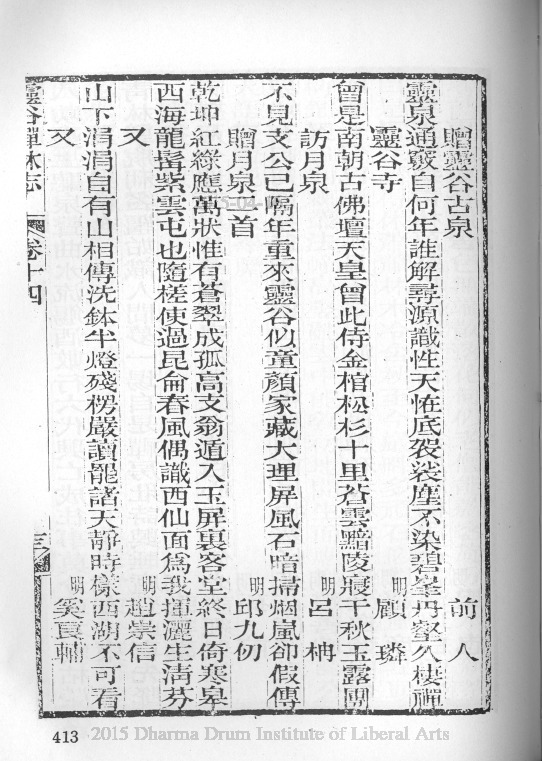 贈靈谷古泉　前人
靈泉通竅自何年誰解尋源識性天恠底袈裟塵不染碧峯丹壑久棲禪
靈谷寺　明顧璘
曾是南朝古佛壇天皇曾此侍金棺松杉十里蒼雲黯陵寢千秋玉露團
訪月泉　明呂柟
不見支公已隔年重來靈谷似童顏家藏大理屏風石暗掃烟嵐卻假傳
贈月泉　首　明邱九仞
乾坤紅綠應萬狀惟有蒼翠成孤高支翁遁入玉屏裏客堂終日倚寒皋
西海龍髯紫雲屯也隨槎使過昆侖春風偶識西仙面爲我揮灑生清芬
又　明趙崇信
山下涓涓自有山相傳洗鉢半燈殘楞嚴讀罷諸天靜時樣西湖不可看
又　明奚良輔
靈谷禪林志　卷十四　三
413
2015 Dharma Drum Institute of Liberal Arts